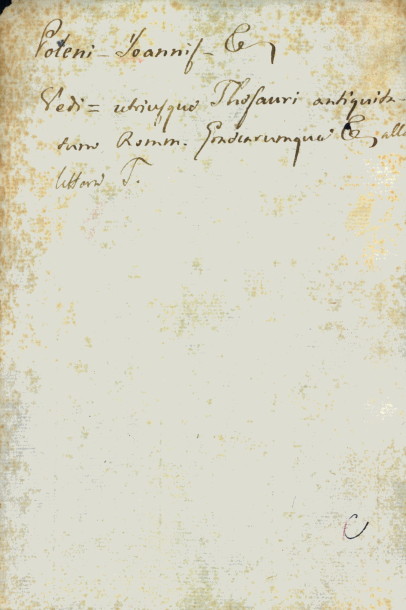 Poleni = Joannis = &c
Vedi = utriusque Thesauri antiquita-
tum Romm. Graecarumque &c alla
lettera T.
C